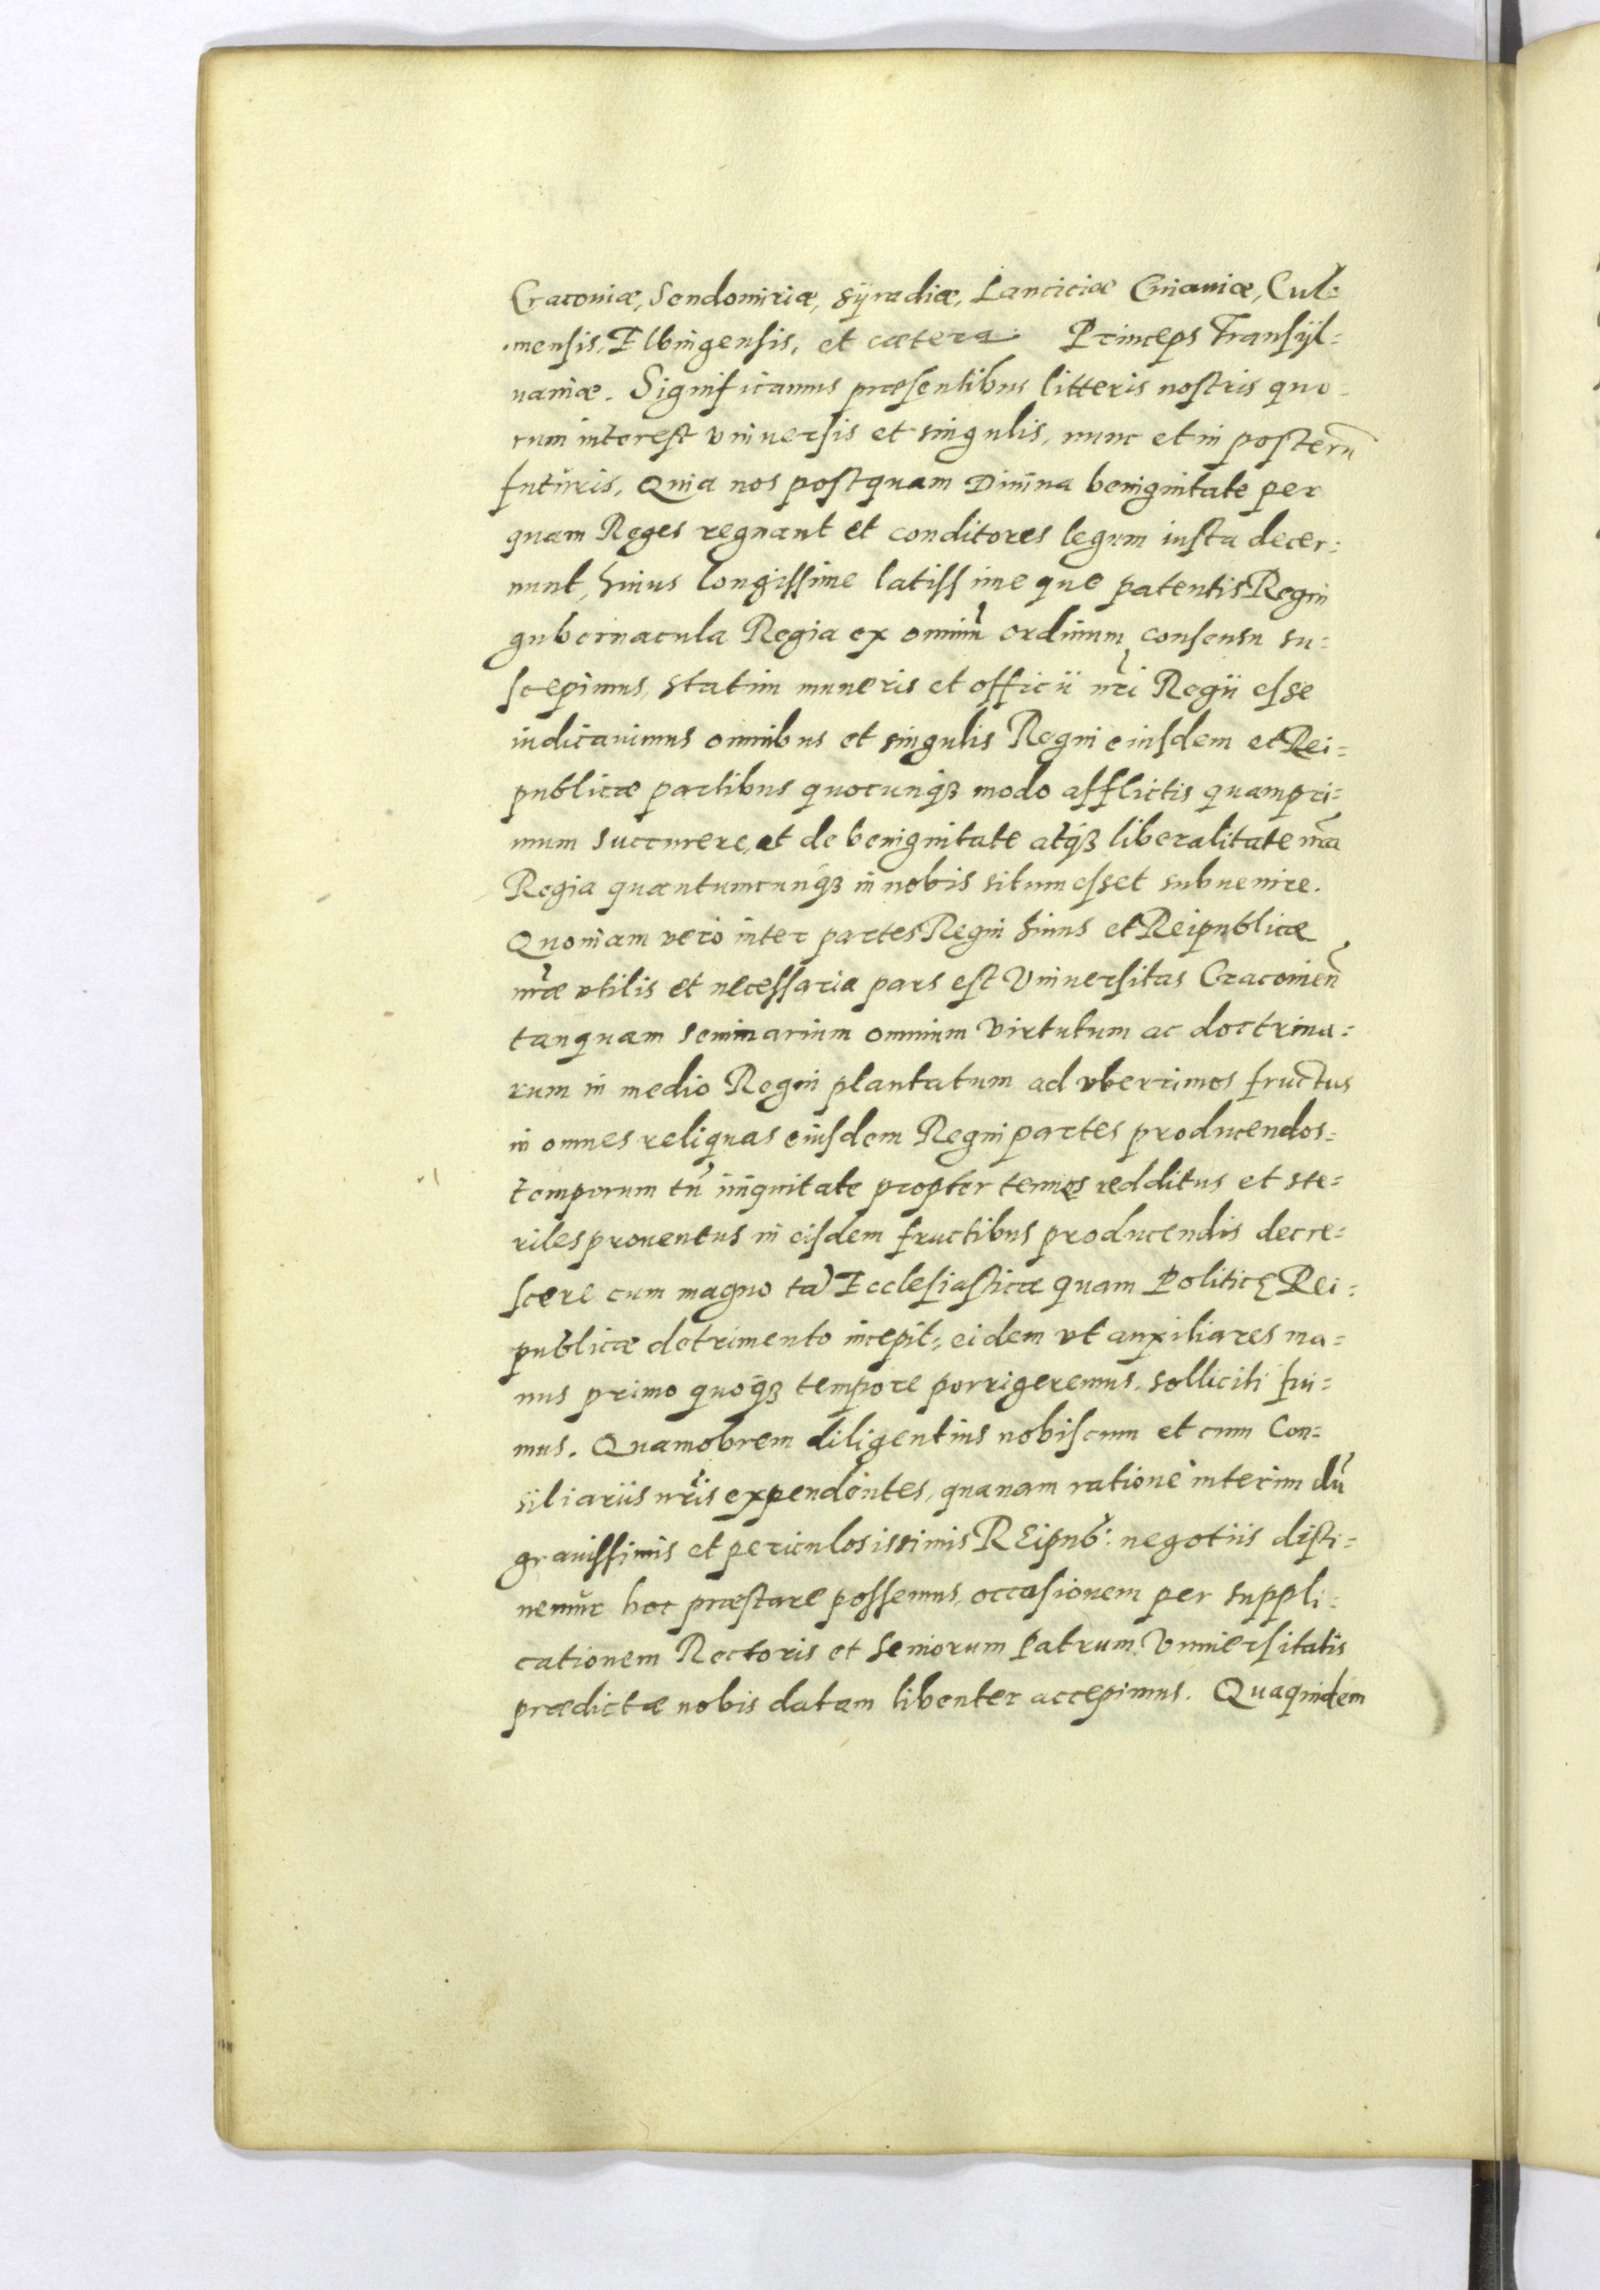 Cracoviæ, Sendomiriæ, Syradiæ, Lanciciæ Cuiauiæ, Cul=
mensis, Elbingensis, et cætera. Princeps Transyl=
uaniæ. Significamus præsentibus litteris nostris quo-
rum interest vniuersis et singulis, nunc et in posterũ
futuris, Quia nos postquam Diuina benignitate per
quam Reges regnant et conditores legum iusta decer=
nunt, huius longissime latissimeque patentis Regni
gubernacula Regia ex omniũ ordinum consensu su=
scepimus, statim muneris et officii nr̃i Regii esse
iudicauimus omnibus et singulis Regni eiusdem et Rei=
publicæ partibus quocunqꝫ modo afflictis quampri=
mum succurrere, et de benignitate atqꝫ liberalitate nr̃a
Regia quantumcunqꝫ in nobis situm esset subuenire.
Quoniam vero inter partes Regni huius et Reipublicæ
nr̃æ vtilis et necessaria pars est Vniuersitas Cracouieñ
tanquam seminarium omnium virtutum ac doctrina=
rum in medio Regni plantatum ad vberrimos fructus
in omnes reliquas eiusdem Regni partes producendos=
temporum tñ iniquitate propter tenues redditus et ste=
riles prouentus in eisdem fructibus producendis decre=
scere cum magno tã Ecclesiasticæ quam Politicę Rei=
publicæ detrimento incepit, eidem vt auxiliares ma=
nus primo quoqꝫ tempore porrigeremus, solliciti fui=
mus. Quamobrem diligentius nobiscum et cum Con=
siliariis nr̃is expendentes, quanam ratione interim dũ
grauissimis et periculosissimis Reipub: negotiis disti=
nemur hoc præstare possemus, occasionem per suppli=
cationem Rectoris et Seniorum Patrum Vniuersitatis
prædictæ nobis datam libenter accepimus. Qua quidem